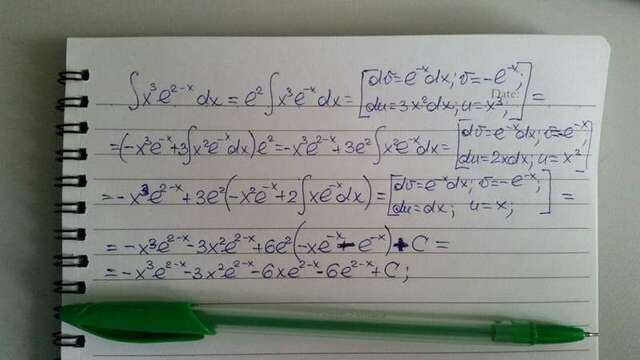 ∫x³e²⁻ˣdx = e²∫x³e⁻ˣdx = [dv=e⁻ˣdx; v=-e⁻ˣ; du=3x²dx; u=x³;] =
=(-x³e⁻ˣ+3∫x²e⁻ˣdx)e²=-x³e²⁻ˣ+3e²∫x²e⁻ˣdx=[dv=e⁻ˣdx; v=-e⁻ˣ; du=2xdx; u=x²]
=-x³e²⁻ˣ+3e²(-x²e⁻ˣ+2∫xe⁻ˣdx)=[dv=e⁻ˣdx; v=-e⁻ˣ; du=dx; u=x;] =
=-x³e²⁻ˣ-3x²e²⁻ˣ+6e²(-xe⁻ˣ-e⁻ˣ)+C=
=-x³e²⁻ˣ-3x²e²⁻ˣ-6xe²⁻ˣ-6e²⁻ˣ+C;
Date: